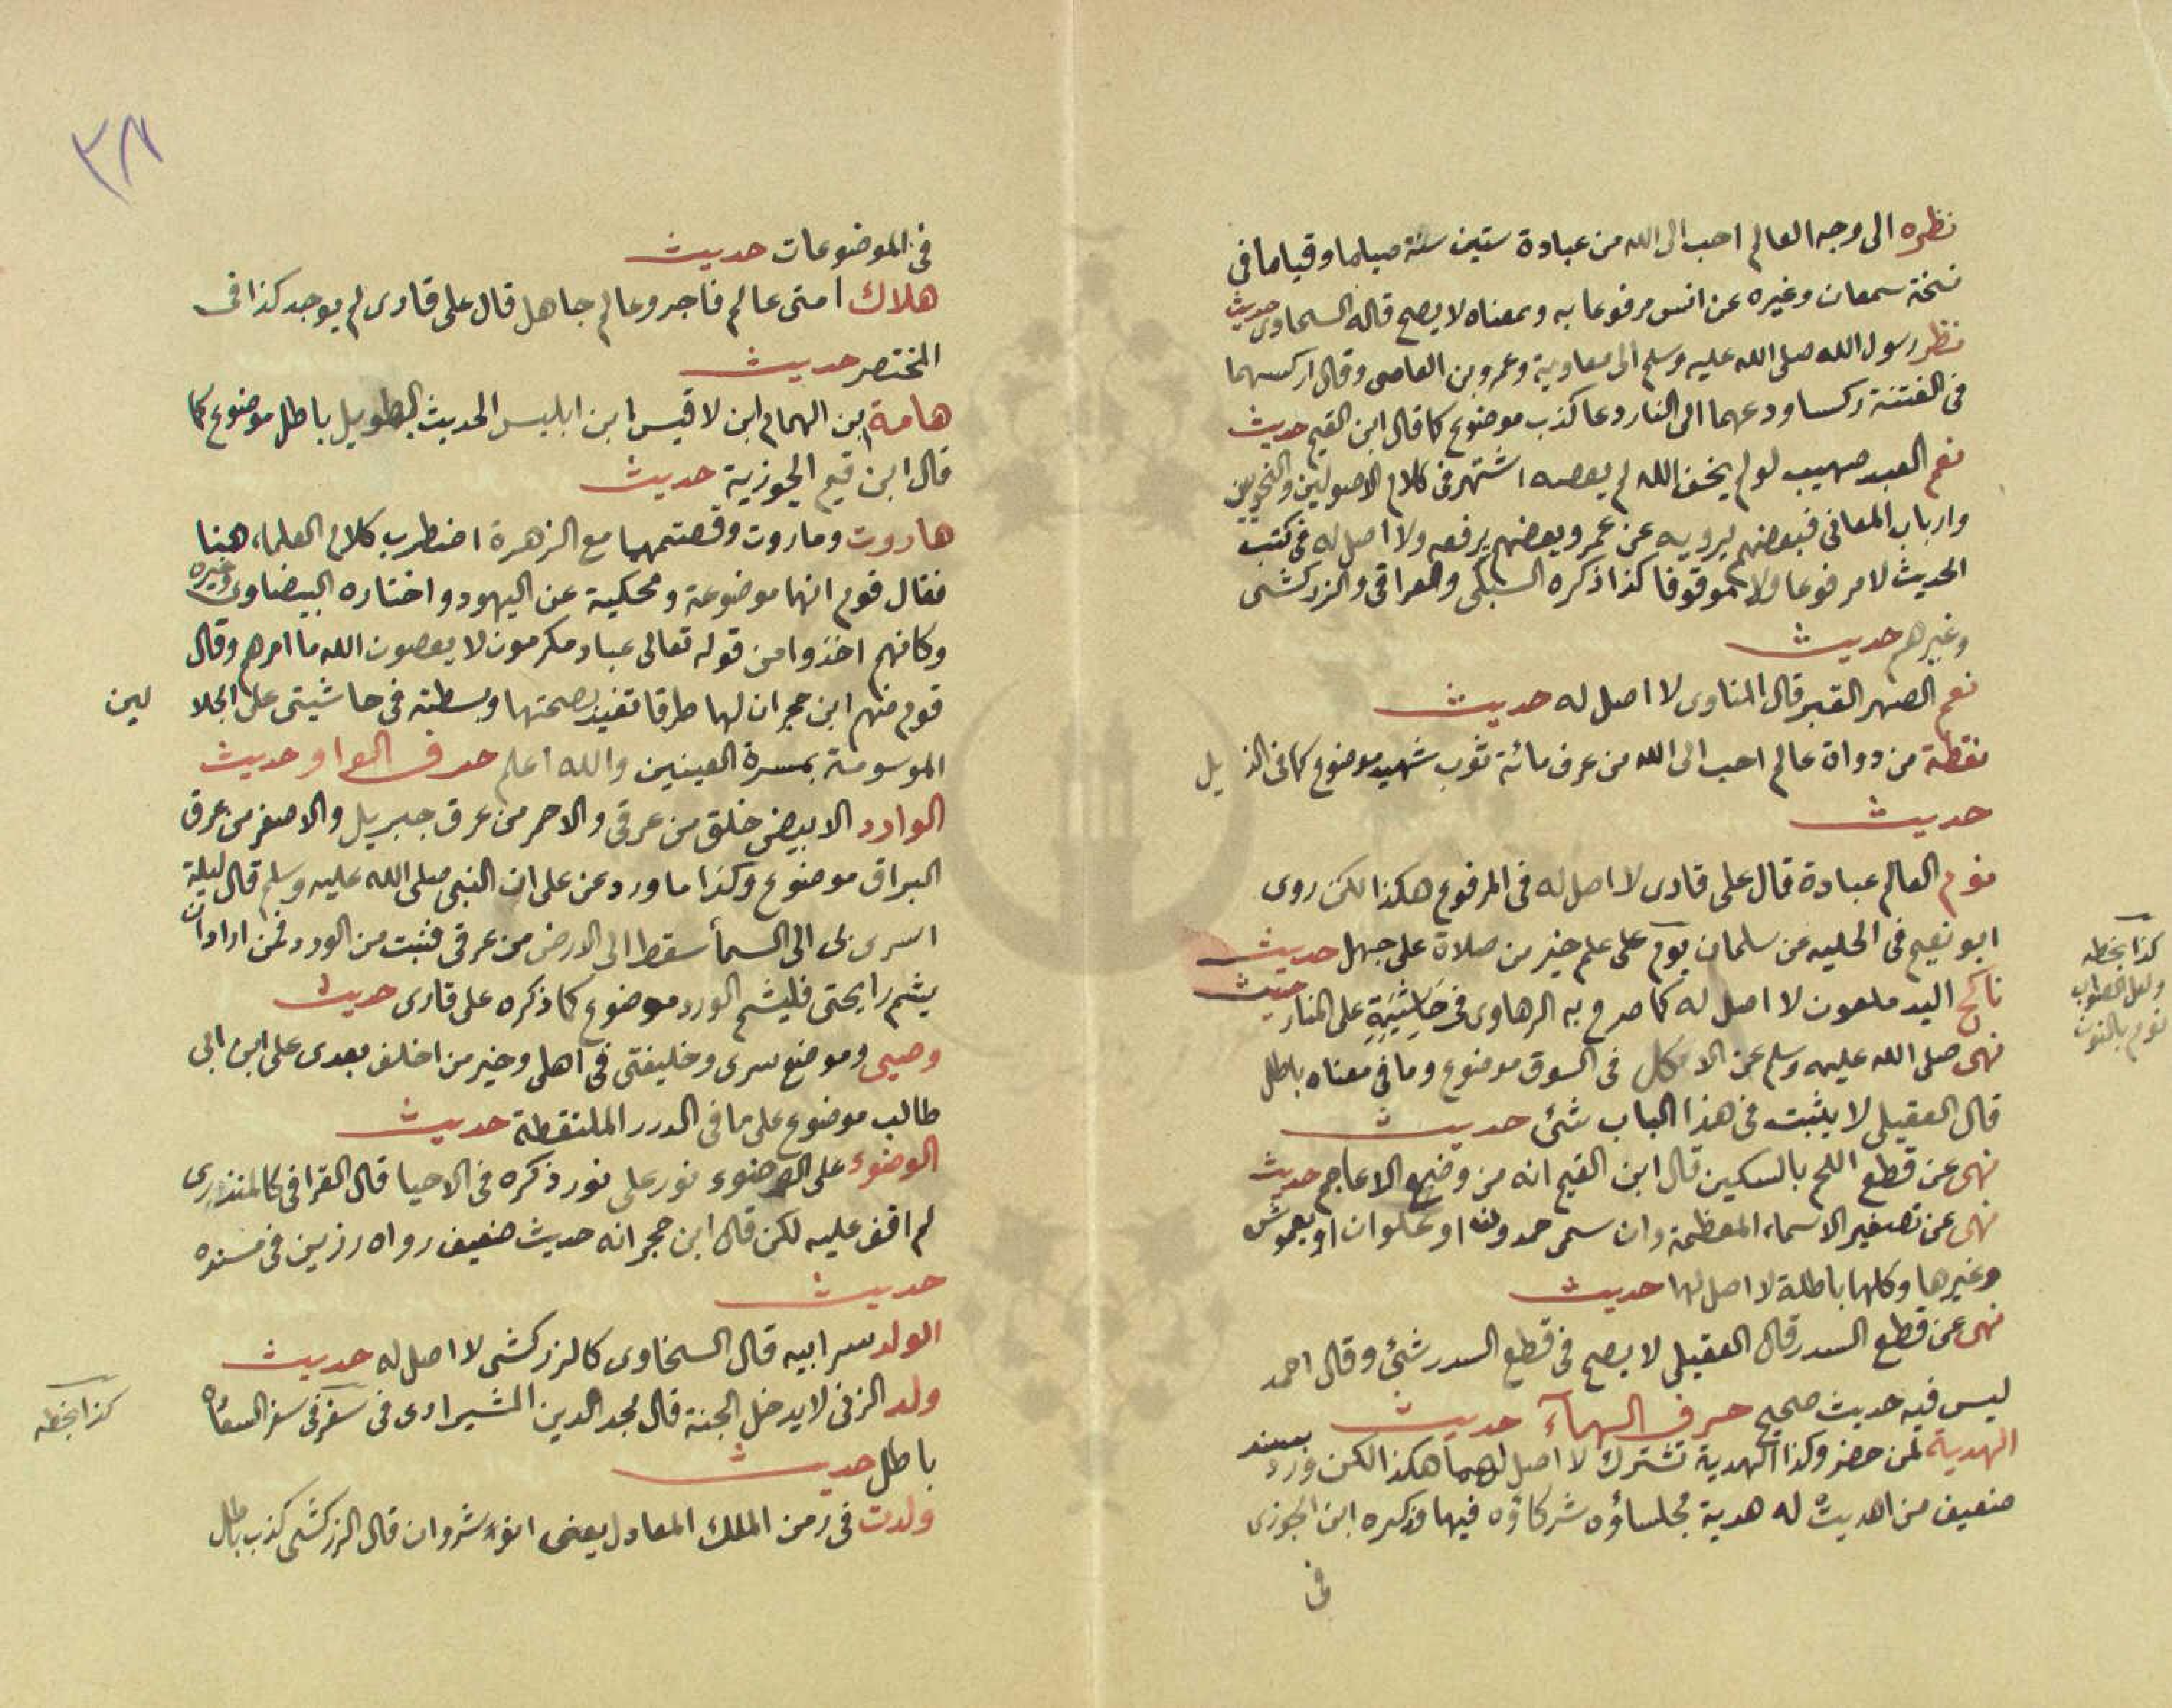 نظره الى وجه العالم احب الى الله من عبادة ستين سنة صياما وقياما فى
نسخة سمعان وغيره عن انس مرفوعا به وبمعناه لا يصح قاله السخاوى حديث
نظر رسول الله صلى الله عليه وسلم الى معاوية وعمرو بن العاصى وقال اركسهما
فى الفتنة ركسا ودعهما الى النار دعا كذب موضوع كما قال ابن القيم حديث
نعم العبد صهيب لو لم يخف الله لم يعصه اشتهر فى كلام الاصوليين والنحويين
وارباب المعانى فبعضهم يرويه عن عمر وبعضهم يرفعه ولا اصل له فى كتب
الحديث لا مرفوعا ولا موقوفا كذا ذكره السبكى والعراقى والزركشى
وغيرهم حديث
نعم الصهر القبر قال المناوى لا اصل له حديث
نقطة من دواة عالم احب الى الله من عرف مائة ثوب شهيد موضوع كما فى الذيل
حديث
نوم العالم عبادة قال على قارى لا اصل له فى المرفوع هكذا لكن روى
ابو نعيم فى الحليه عن سلمان يوم على علم خير من صلاة على جهل حديث
كذا بخطه
ولعل الصواب
نوم بالنون
ناكح اليد ملعون لا اصل له كما صرح به الرهاوى فى حاشيته على المنار حديث
نهى صلى الله عليه وسلم عن الاكل فى السوق موضوع وما فى معناه باطل
قال العقيلى لا يثبت فى هذا الباب شئ حديث
نهى عن قطع اللحم بالسكين قال ابن القيم انه من وضع الاعاجم حديث
نهى عن تصغير الاسماء المعظمة وان سمى حمدون او علوان او يعموش
وغيرها وكلها باطلة لا اصل لها حديث
نهى عن قطع السدر قال العقيلى لا يصح فى قطع السدر شئ وقال احمد
ليس فيه حديث صحيح حرف الهآء حديث
الهدية لمن حضر وكذا الهدية تشترك لا اصل لهما هكذا لكن ورد بسند
ضعيف من اهديت له هدية فجلساؤه شركاؤه فيها وذكره ابن الجوزى
فى
٢٨
فى الموضوعات حديث
هلاك امتى عالم فاجر وعالم جاهل قال على قارى لم يوجد كذا فى
المختصر حديث
هامة بن الهمام ابن لاقيس ابن ابليس الحديث الطويل باطل موضوع كما
قال ابن قيم الجوزية حديث
هاروت وماروت وقصتهما مع الزهرة اضطرب كلام العلماء هنا
فقال قوم انها موضوعة ومحكية عن اليهود واختاره البيضاوى وغيره
وكانهم اخذوا من قوله تعالى عباد مكرمون لا يعصون الله ما امرهم وقال
قوم منهم ابن حجر ان لها طرقا تفيد بصحتها وبسطته فى حاشيتى على الجلالين
الموسومة بمسرة العينين والله اعلم حرف الواو حديث
الوارد الابيض خلق من عرقى والاحمر من عرق جبريل والاصفر من عرق
البراق موضوع وكذا ما ورد عن على ان النبى صلى الله عليه وسلم قال ليلة
اسرى بى الى السمأ سقط الى الارض من عرقى فنبت من الورد فمن اراد ان
يشم رايحتى فليشم الورد موضوع كما ذكره على قارى حديث
وصيى وموضع سرى وخليفتى فى اهلى وخير من اخلف بعدى على ابن ابى
طالب موضوع على ما فى الدرر الملتقطة حديث
الوضوء على الوضوء نور على نور ذكره فى الاحيا قال العراقى كالمنذرى
لم اقف عليه لكن قال ابن حجر انه حديث ضعيف رواه رزين فى مسنده
حديث
الولد سر ابيه قال السخاوى كالزركشى لا اصل له حديث
ولد الزنى لا يدخل الجنة قال مجد الدين الشيرازى فى سفر السعاده
كذا بخطه
باطل حديث
ولدت فى زمن الملك العادل يعنى انوشروان قال الزركشى كذب باطل